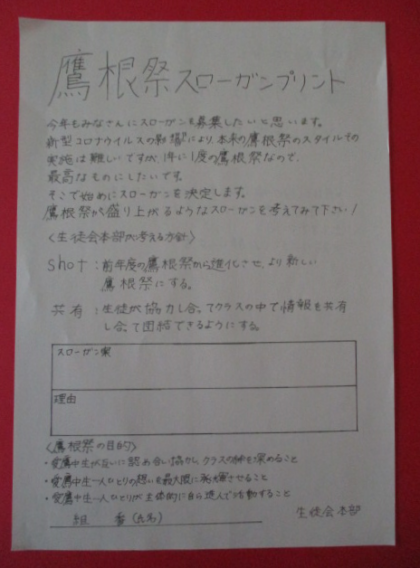 鷹根祭スローガンプリント
今年もみなさんにスローガンを募集したいと思います。
新型コロナウイルスの影響により、本来の鷹根祭のスタイルでの
実施は難しいですが、1年に1度の鷹根祭なので、
最高なものにしたいです。
そこで始めにスローガンを決定します。
鷹根祭が盛り上がるようなスローガンを考えてみて下さい!
〈生徒会本部が考える方針〉
shot:前年度の鷹根祭から進化させ、より新しい
鷹根祭にする。
共有:生徒が協力し合ってクラスの中で情報を共有
し合って団結できるようにする。
スローガン案
理由
〈鷹根祭の目的〉
・愛鷹中生が互いに認め合い協力し、クラスの絆を深めること
・愛鷹中生一人ひとりの想いを最大限に発揮させること
・愛鷹中生一人ひとりが主体的に自ら進んで活動すること
組 番(氏名)
生徒会本部